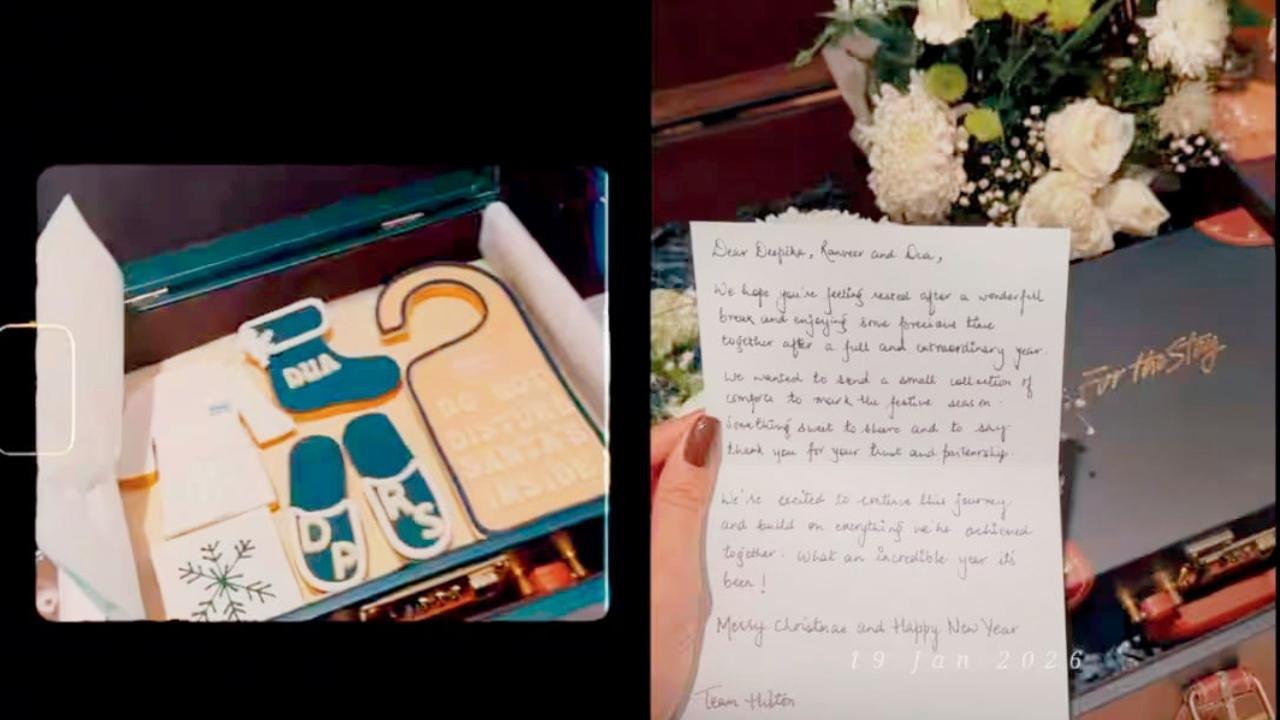 DUA
DO NOT
DISTURB
SANTA'S
INSIDE
DP
RS
Dear Deepika, Ranveer and Dua,
We hope you're feeling rested after a wonderful
break and enjoying some precious time
together after a full and extraordinary year.
We wanted to send a small collection of
comforts to mark the festive season.
Something sweet to share and to say
thank you for your trust and partnership.
We're excited to continue this journey
and build on everything we've achieved
together. What an incredible year it's
been!
Merry Christmas and Happy New Year
19 Jan 2026
Team Hilton
For the Stay